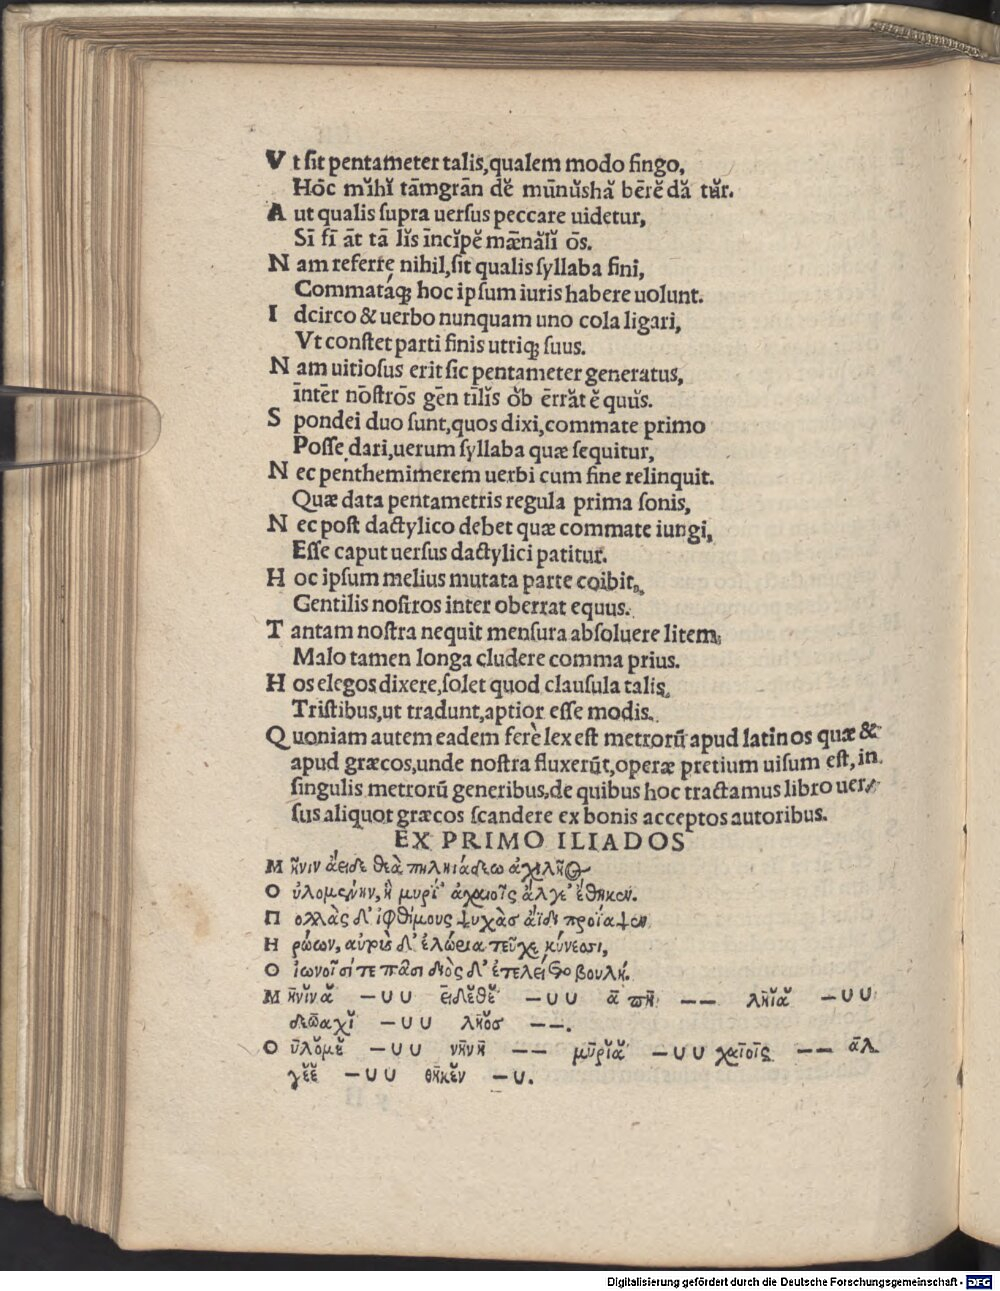 V t ſit pentameter talis,qualem modo fingo,
Hōc mı̆hı̆ tāmgrān dĕ mūnŭshă bērĕ dă tŭr.
A ut qualis ſupra uerſus peccare uidetur,
Sī fī āt tā lı̆s īncı̆pĕ mænălı̆ ōs.
N am referre nihil,ſit qualis ſyllaba fini,
Commatáq; hoc ipſum iuris habere uolunt.
I dcirco & uerbo nunquam uno cola ligari,
Vt conſtet parti finis utriq; ſuus.
N am uitioſus erit ſic pentameter generatus,
īntēr nōſtrōs gēn tīlı̆s ŏb ērrăt ĕ quŭs.
S pondei duo ſunt,quos dixi,commate primo
Poſſe dari,uerum ſyllaba quæ ſequitur,
N ec penthemimerem uerbi cum fine relinquit.
Quæ data pentametris regula prima ſonis,
N ec poſt dactylico debet quæ commate iungi,
Eſſe caput uerſus dactylici patitur.
H oc ipſum melius mutata parte coibit,
Gentilis noſtros inter oberrat equus.
T antam noſtra nequit menſura abſoluere litem,
Malo tamen longa cludere comma prius.
H os elegos dixere,ſolet quod clauſula talis,
Triſtibus,ut tradunt,aptior eſſe modis.
Q uoniam autem eadem ferè lex eſt metrorū apud latinos quæ &
apud græcos,unde noſtra fluxerūt,operæ pretium uiſum eſt,in
ſingulis metrorū generibus,de quibus hoc tractamus libro uer/
ſus aliquot græcos ſcandere ex bonis acceptos autoribus.
EX PRIMO ILIADOS
Μ ῆνιν ἄειδε θεὰ πηληιάδεω ἀχιλῆος
Ο ὐλομένην, ἣ μυρί' ἀχαιοῖς ἄλγε' ἔθηκεν.
Π ολλὰς δ' ἰφθίμους ψυχὰσ ἄϊδι προΐαψεν
Η ρώων, αὐτοὺς δ' ἑλώρια τεῦχε κύνεσσι,
Ο ἰωνοῖσί τε πᾶσι διὸς δ' ἐτελείετο βουλή.
Μ η̄νῐνᾰ —∪∪ εῑδεθε —∪∪ ᾱ πη —— ληϊα —∪∪
δεωαχι —∪∪ ληοσ ——.
Ο ῡλομε —∪∪ νηνη —— μῡρια —∪∪ χαιοις —— αλ
γεε —∪∪ θηκεν —∪.
Digitalisierung gefördert durch die Deutsche Forschungsgemeinschaft - DFG